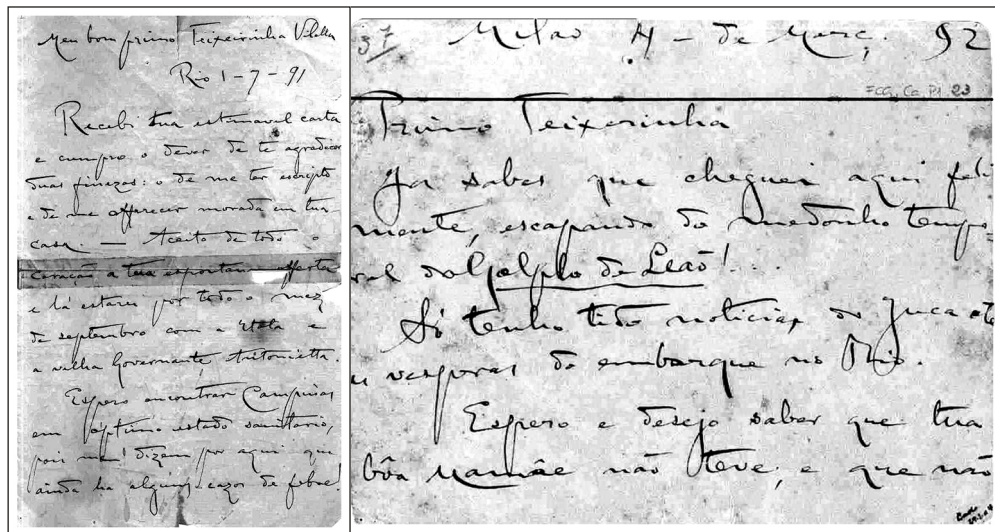 Meu bom primo Teixeirinha Vilella
Rio 1-7-91
Recebi tua estimavel carta
e cumpro o dever de te agradecer
duas finezas: o de me ter escripto
e de me offerecer morada em tua
casa. — Aceito de todo o
coração a tua espontanea offerta
e lá estarei por todo o mez
de septembro com a Itala e
a velha Governante, Antonietta.
Espero encontrar Campinas
em optimo estado sanitario,
pois me dizem por aqui que
ainda ha alguns cazos de febre!
37
Milão 4 - de Març. 92
=CG, Ca, P1 23
Primo Teixeirinha
Ja sabes que cheguei aqui feliz
mente, escapando do medonho tempo-
ral do Golpho de Leão!...
Só tenho tido noticias do Juca até
vesporas do embarque no Rio.
Espero e desejo saber que tua
bôa Mamãe não teve, e que não